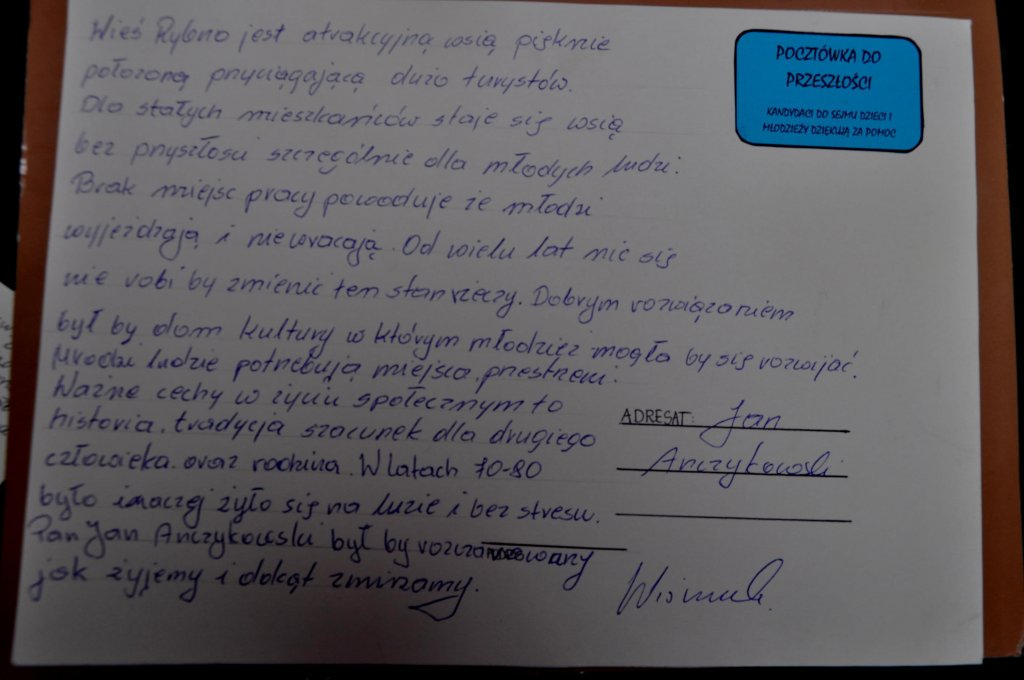 Wieś Rybno jest atrakcyjną wsią pięknie
położoną przyciągającą dużo turystów.
Dla stałych mieszkańców staje się wsią
bez przyszłości szczególnie dla młodych ludzi.
Brak miejsc pracy powoduje że młodzi
wyjeżdżają i nie wracają. Od wielu lat nic się
nie robi by zmienić ten stan rzeczy. Dobrym rozwiązaniem
był by dom kultury w którym młodzież mogła by się rozwijać.
Młodzi ludzie potrzebują miejsca, przestrzeni.
Ważne cechy w życiu społecznym to
historia, tradycja szacunek dla drugiego
człowieka. oraz rodzina. W latach 70-80
było inaczej żyło się na luzie i bez stresu.
Pan Jan Anczykowski był by rozczarowany
jak żyjemy i dokąt zmirzamy.
POCZTÓWKA DO
PRZESZŁOŚCI
KANDYDACI DO SEJMU DZIECI I
MŁODZIEŻY DZIĘKUJĄ ZA POMOC
ADRESAT: Jan
Anczykowski